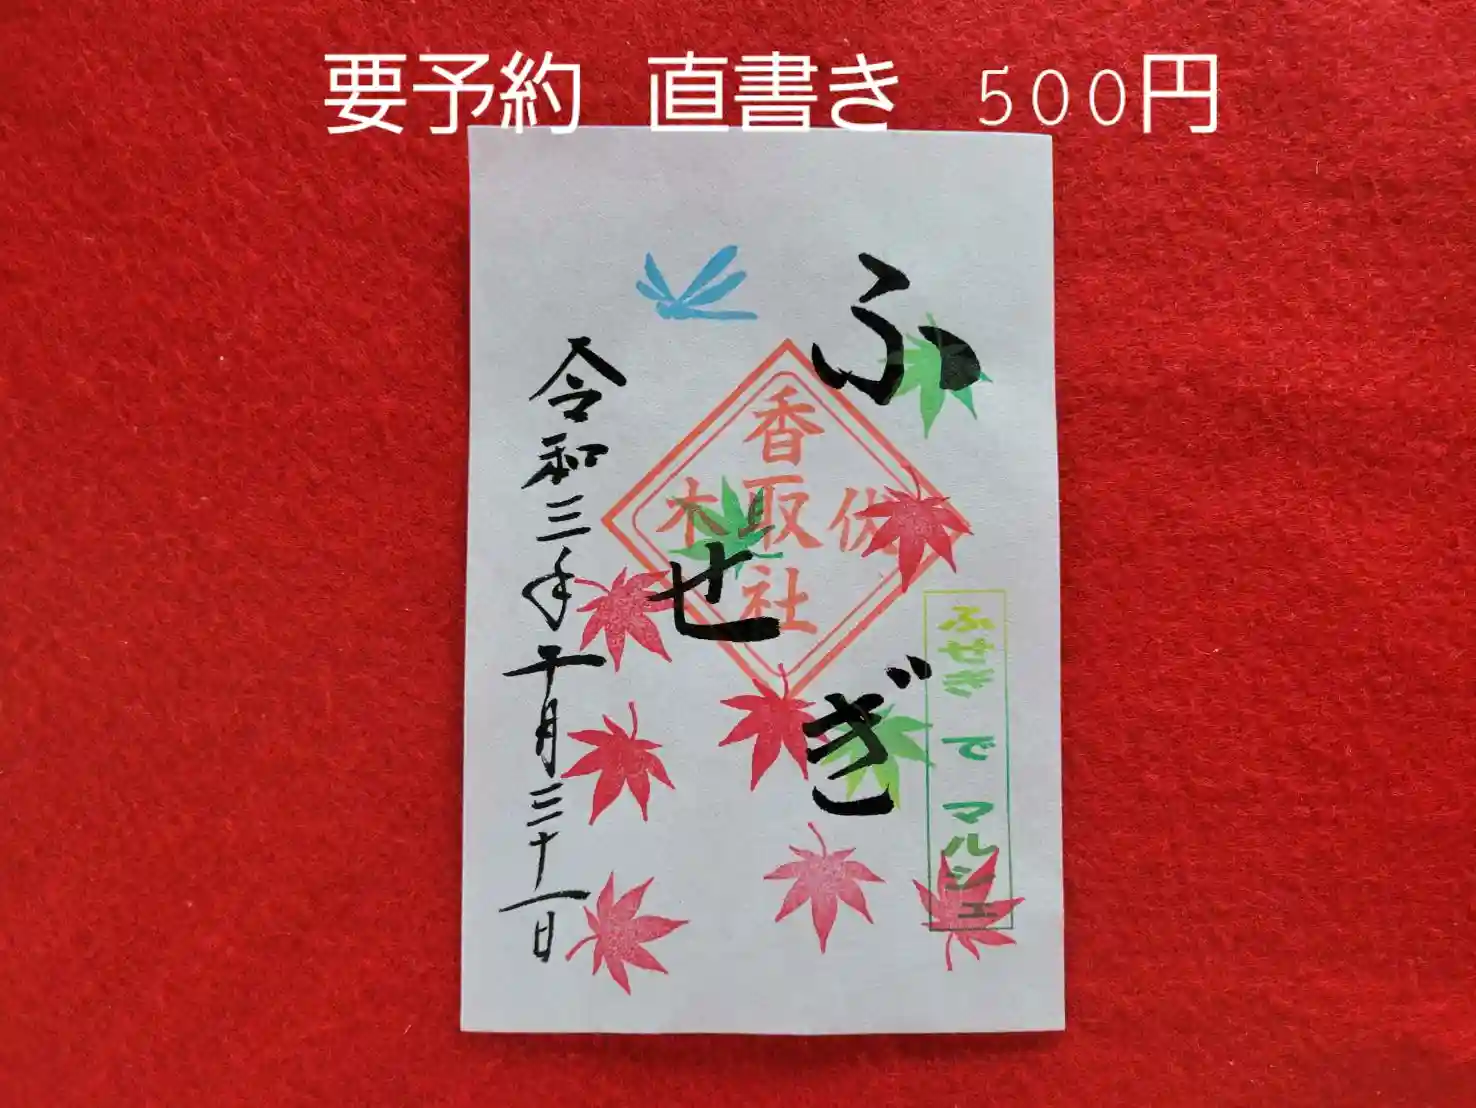 要予約 直書き 500円
ふせぎ
佐木
香取社
ふせぎ で マルシェ
令和三年十月三十一日